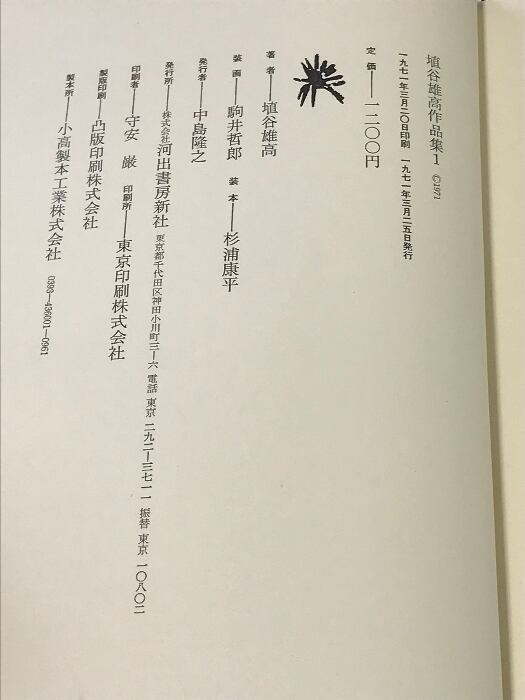 埴谷雄高作品集1 ©1971
一九七一年三月二〇日印刷 一九七一年三月二五日発行
定価——一二〇〇円
著者——埴谷雄高
装画——駒井哲郎 装本——杉浦康平
発行者——中島隆之
発行所——株式会社河出書房新社 東京都千代田区神田小川町三—六 電話 東京 二九二—三七一一 振替 東京 一〇八〇二
印刷者——守安 巌 印刷所——東京印刷株式会社
製版印刷——凸版印刷株式会社
製本所——小高製本工業株式会社 0393—436001—0961